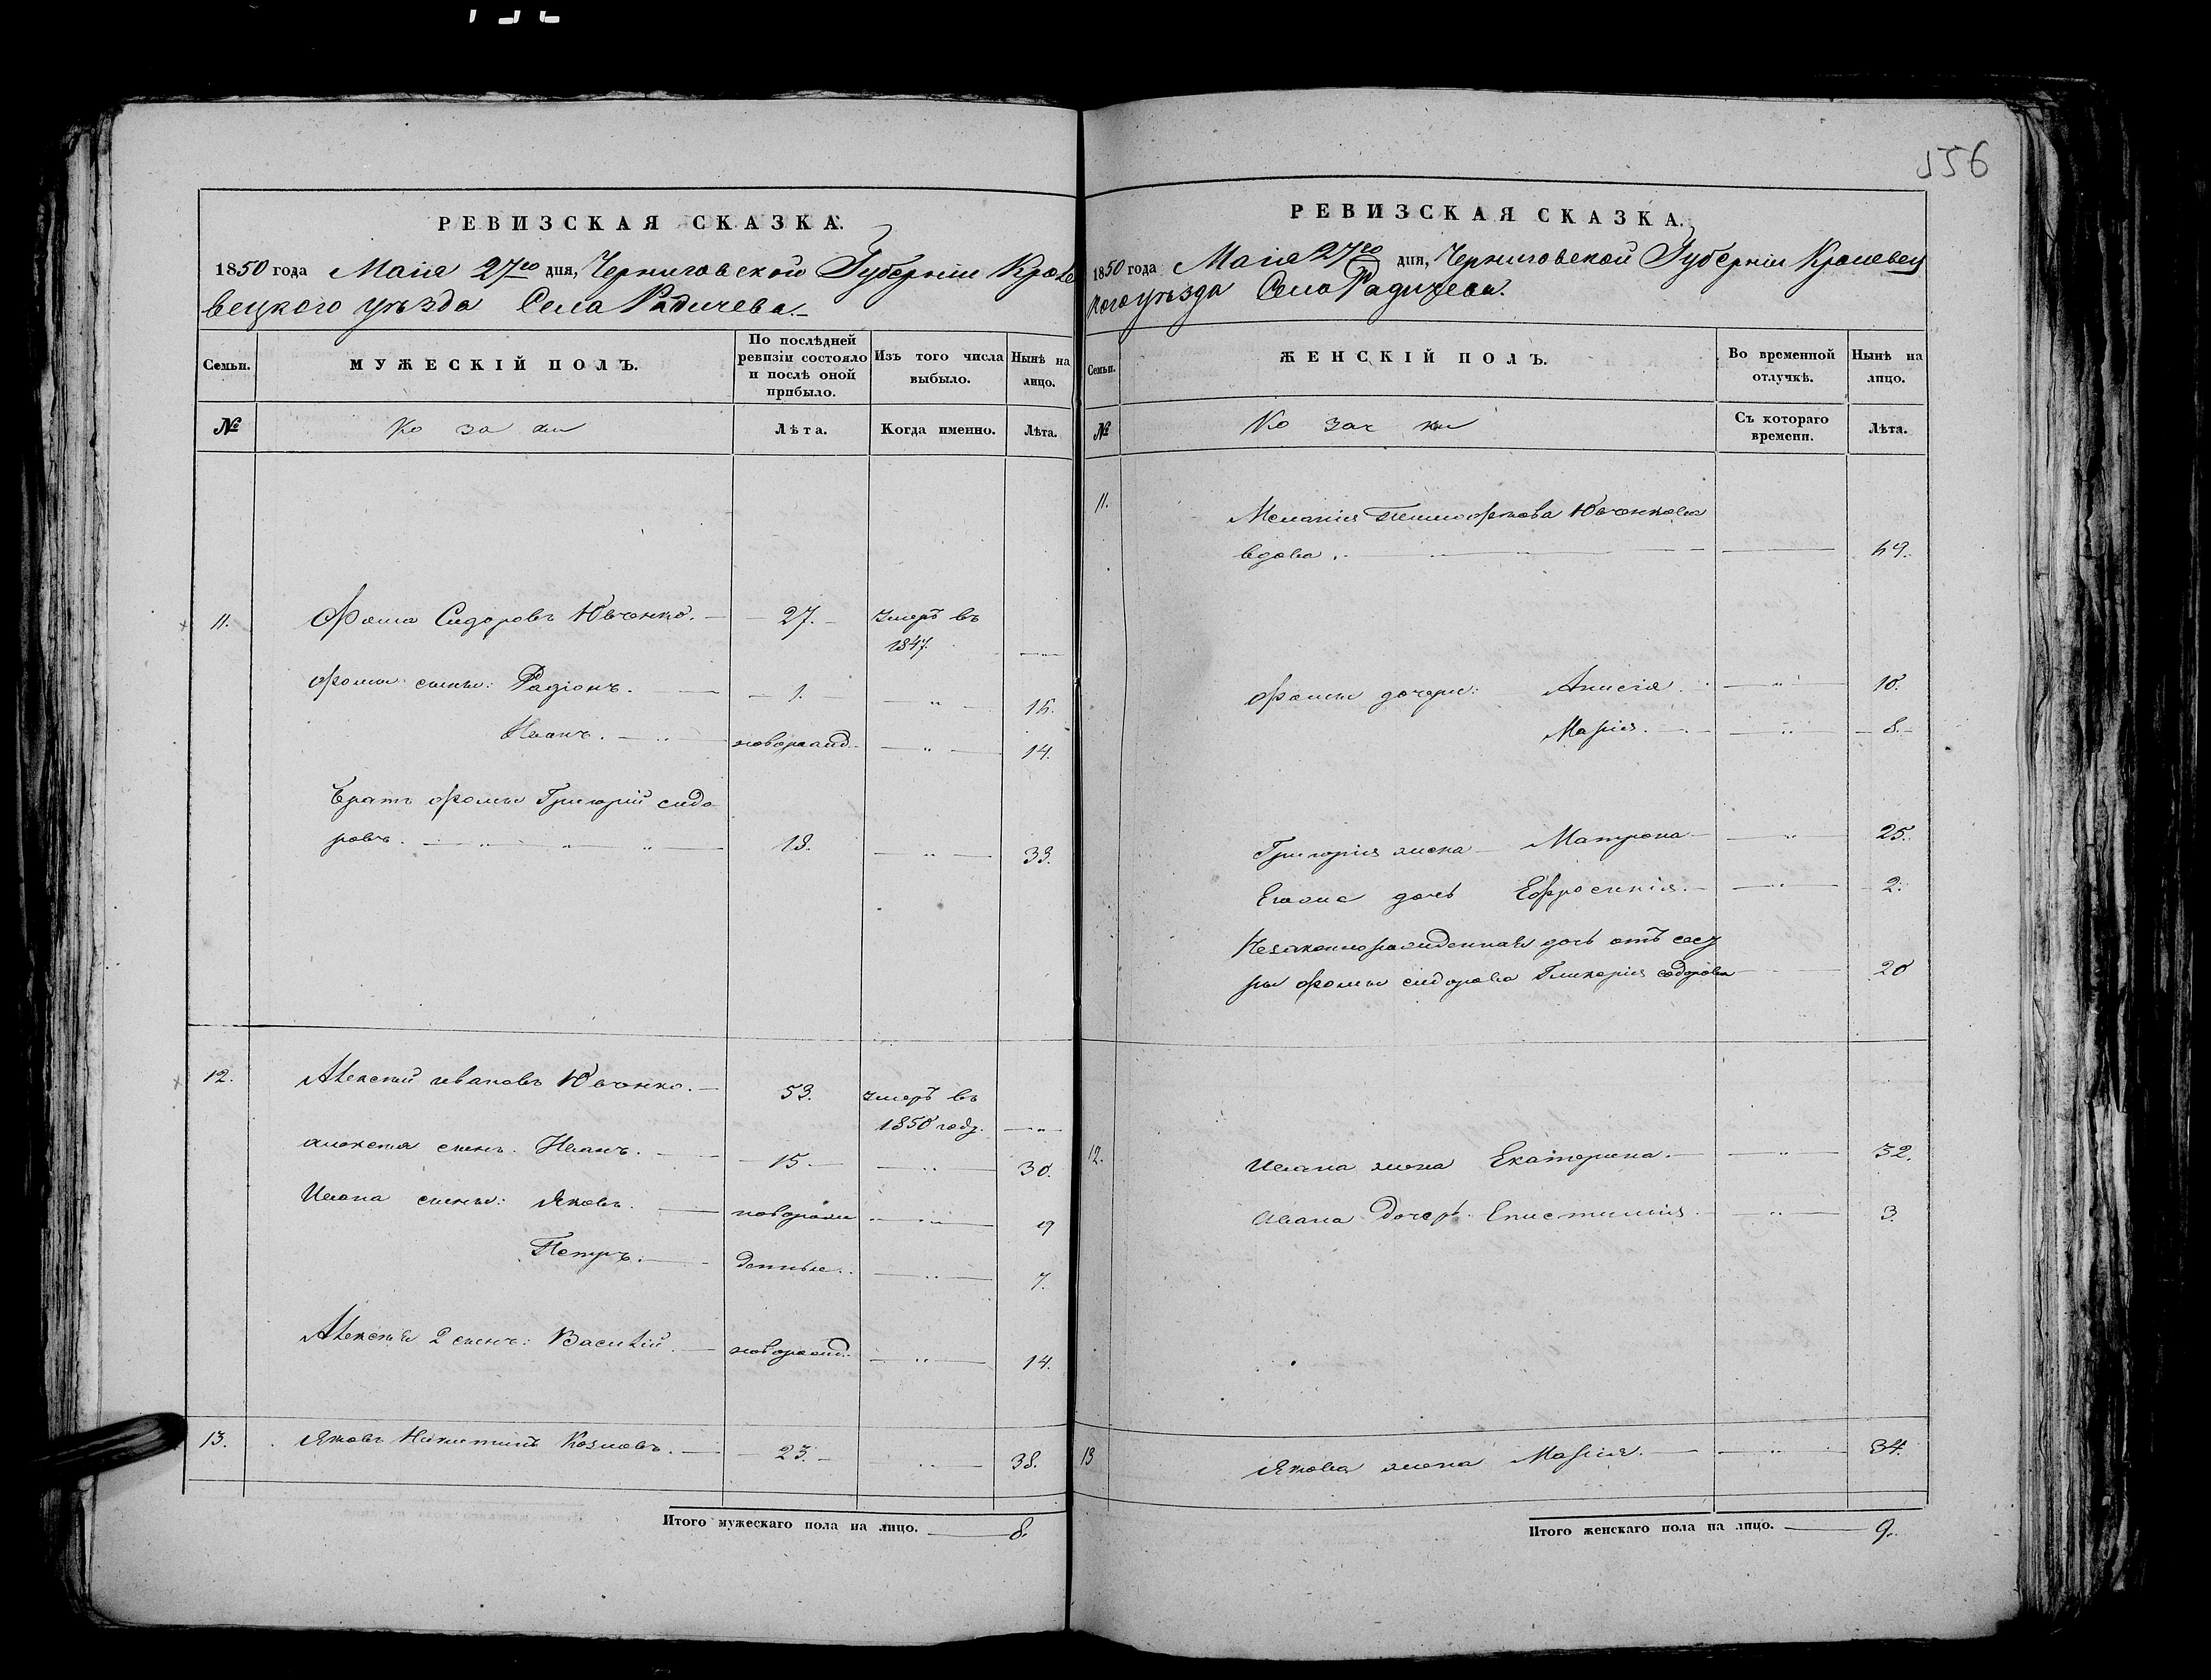 156
РЕВИЗСКАЯ СКАЗКА.
1850 года Маія 27го дня, Черниговской Губерніи Кроле
вецкого уѣзда Села Радичева.
Семьи.
МУЖЕСКІЙ ПОЛЪ.
По послѣдней ревизіи состояло и послѣ оной прибыло.
Изъ того числа выбыло.
Нынѣ на лицо.
№
Козаки
Лѣта.
Когда именно.
Лѣта.
11. Фома Сидоровъ Ювченко. 27. умеръ въ
1847.
Фомы сыны: Радіонъ. 1. 16.
Иванъ. новорожд. 14.
Братъ Фомы Григорій Сидо
ровъ. 18. 33.
12. Алексѣй Ивановъ Ювченко. 53. умеръ въ
1850 году.
Алексѣя сынъ. Иванъ. 15. 30.
Ивана сыны: Яковъ. новорож 9
Петръ. денные. 7.
Алексѣя 2 сынъ: Василій. новорожд. 14.
13. Яковъ Никитинъ Козловъ. 23. 38.
Итого мужескаго пола на лицо. 8.
РЕВИЗСКАЯ СКАЗКА.
1850 года Маія 27го дня, Черниговской Губерніи Кролевец
кого уѣзда Села Радичева.
Семьи.
ЖЕНСКІЙ ПОЛЪ.
Во временной отлучкѣ.
Нынѣ на лицо.
№
Козачки
Съ котораго времени.
Лѣта.
11.
Меланія Ювченкова
вдова. 69.
Фомы дочери: Анисія. 10.
Марія. 8.
Григорія жена Матрона 25.
Егоже дочь Ефросинія. 2.
Незаконнорожденная дочь отъ сест
ры Фомы Сидорова Гликерія 20
12. Ивана жена Екатерина. 32.
Ивана дочерь Епистимія. 3.
13 Якова жена Марія. 34.
Итого женскаго пола на лицо. 9.